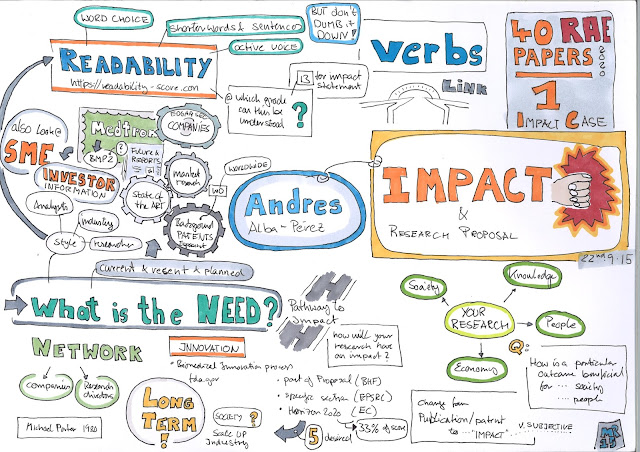 WORD CHOICE
shorter words & sentences
active voice
BUT don't
DUMB it
DOWN!
READABILITY
https://readability-score.com
@ which grade
can this be
understood
?
13 for impact
statement
verbs
LINK
40 RAE
PAPERS
1
IMPACT CASE
also look @
SME
Medtronic
BMP2
COMPANIES
Future &
REPORTS
market
research
State of
the ART
Background
PATENTS
INVESTOR
INFORMATION
Analysts
industry
style
researcher
WORLDWIDE
Andres
Alba-Pérez
IMPACT
&
RESEARCH PROPOSAL
22nd 9.15
current & present & planned
What is the NEED?
Pathway to
Impact
how will your
research have
an impact?
NETWORK
Companies
Research
directors
Michael Porter 1980
INNOVATION
• Biomedical Innovation process
LONG
TERM!
SOCIETY ?
Scale UP
Industry
• part of Proposal (BHF)
• specific section (EPSRC)
• Horizon 2020 (EC)
33% of score
5 desired
Society
Knowledge
YOUR
RESEARCH
People
Economy
Q:
How is a particular
outcome beneficial
for ... society
... people
Change from
Publication/patent
to ... "IMPACT" v. SUBJECTIVE